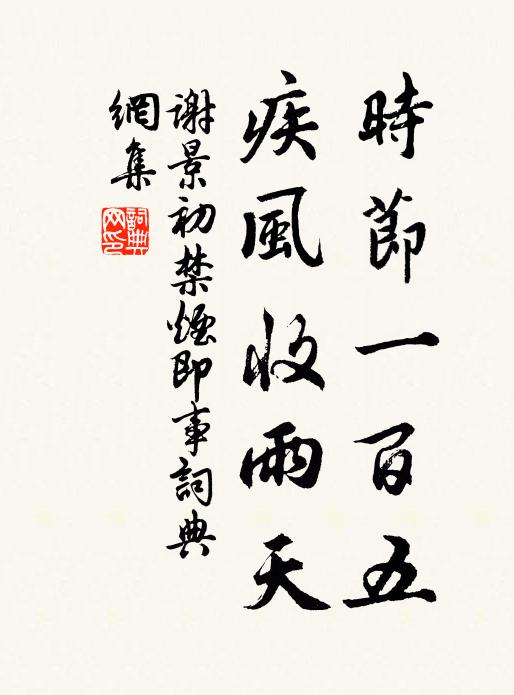 時節一百五
疾風收雨天
謝景初禁煙即事詞典
網集
詞典
网印